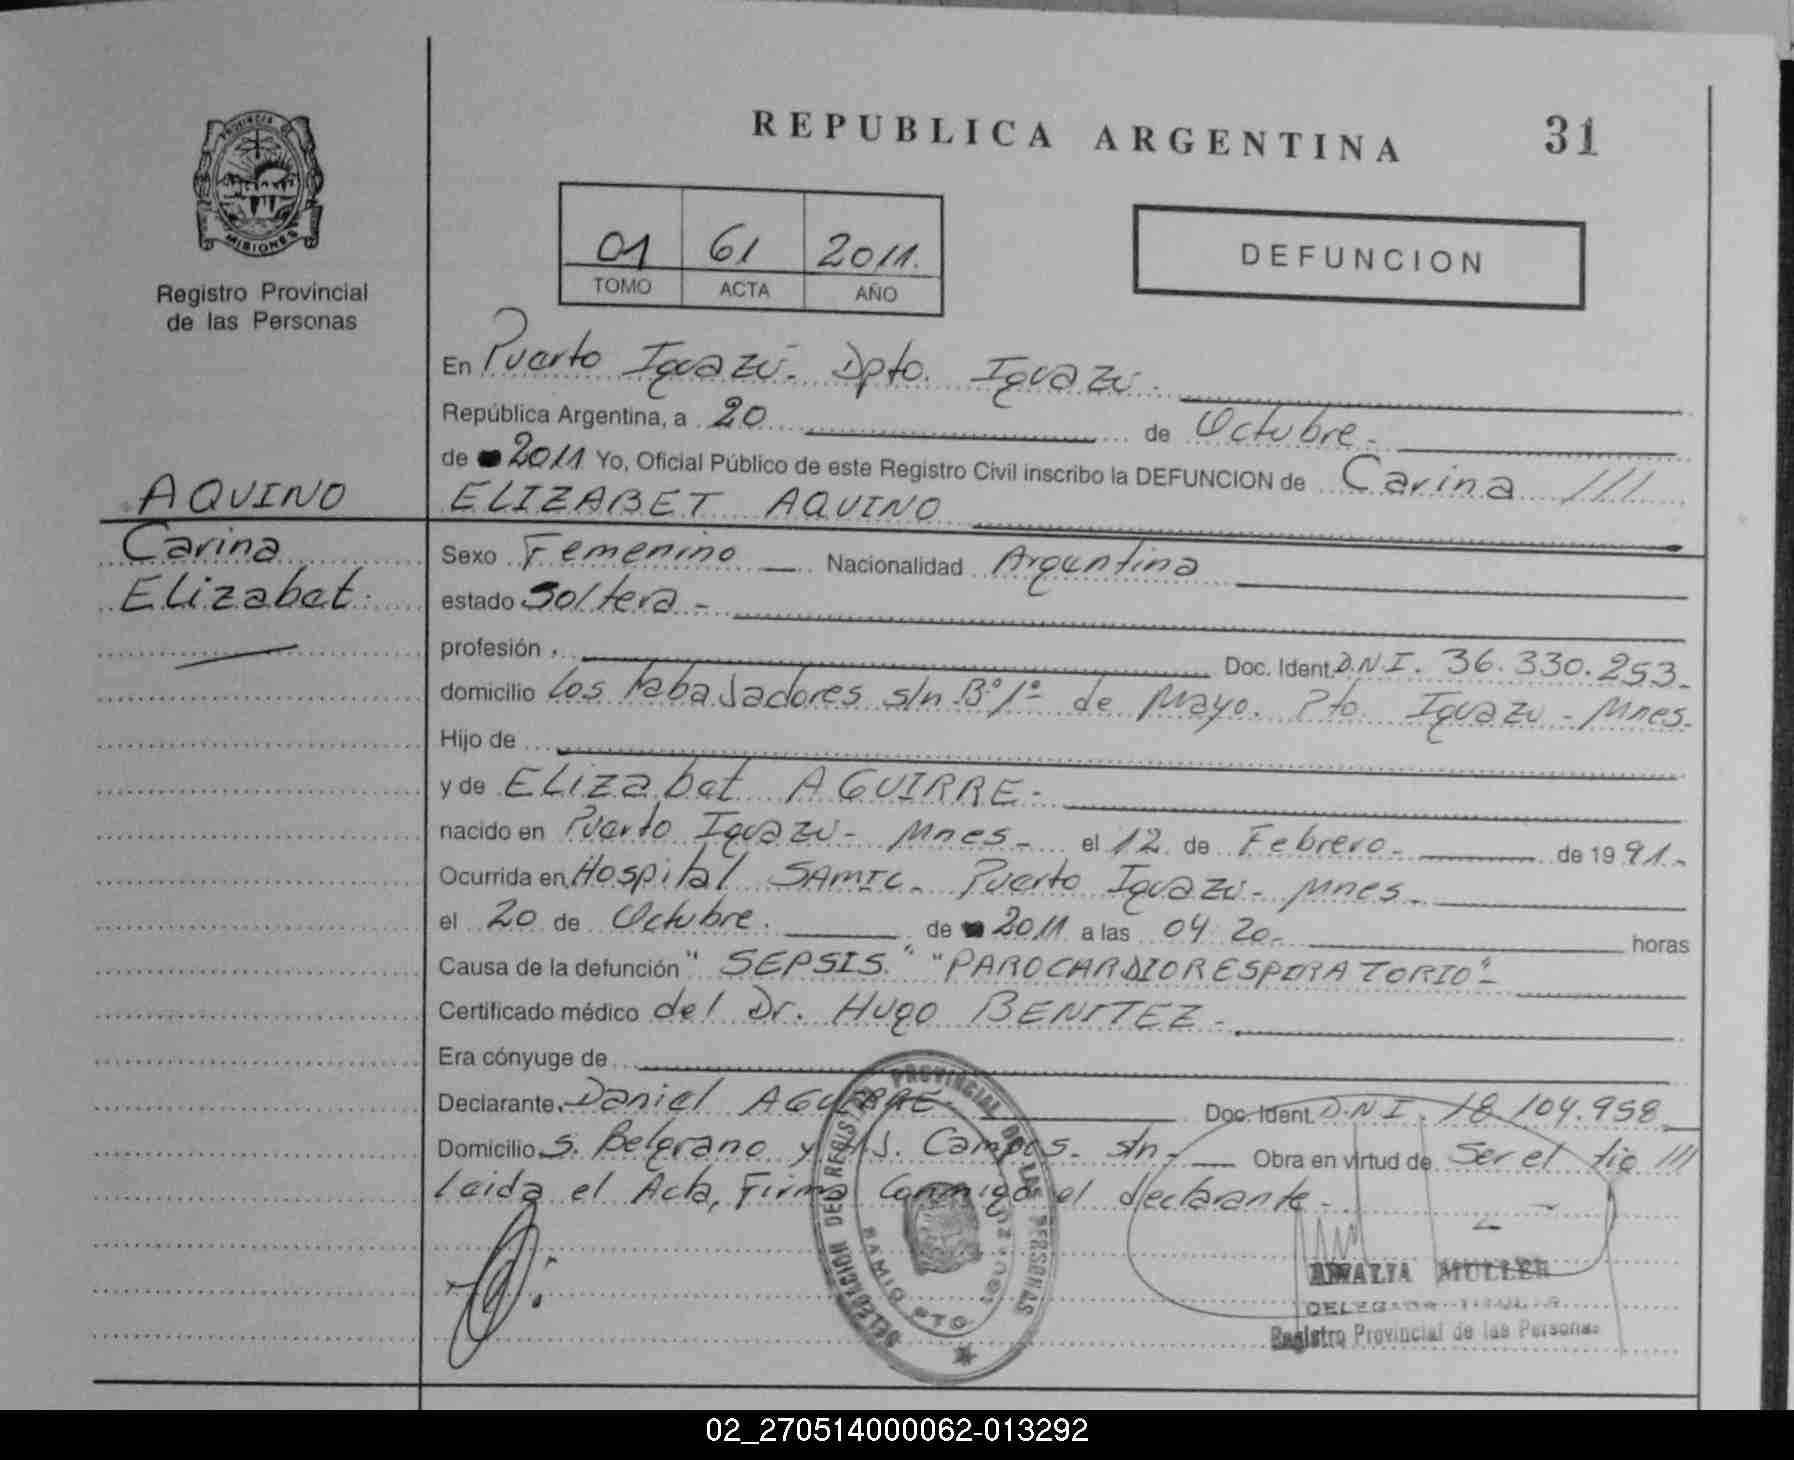 REPUBLICA ARGENTINA 31
PROVINCIA DE
MISIONES
Registro Provincial
de las Personas
01 61 2011.
TOMO ACTA AÑO
DEFUNCION
En Puerto Iguazú - Dpto. Iguazú.
República Argentina, a 20 de Octubre -
de 2011 Yo, Oficial Público de este Registro Civil inscribo la DEFUNCION de Carina ///
AQUINO
ELIZABET AQUINO
Carina
Elizabet.
Sexo Femenino — Nacionalidad Argentina
estado Soltera -
profesión Doc. Ident. D.N.I. 36.330.253-
domicilio Los Tabajadores s/n Bº 1º de Mayo. Pto. Iguazú - Mnes.
Hijo de
y de Elizabet AGUIRRE -
nacido en Puerto Iguazú - Mnes - el 12 de Febrero - de 1991.-
Ocurrida en Hospital SAMIC - Puerto Iguazú - Mnes -
el 20 de Octubre. de 2011 a las 04 20 - horas
Causa de la defunción "SEPSIS." "PAROCARDIORESPIRATORIO" -
Certificado médico del Dr. Hugo BENITEZ -
Era cónyuge de
Declarante Daniel AGUIRRE Doc. Ident. D.N.I. 18 104.958
Domicilio S. Belgrano y Campos - s/n - Obra en virtud de Ser el tio ///
Leida el Acta, Firma Conmigo el declarante -
DELEGACION DEL REGISTRO PROVINCIAL DE LAS PERSONAS
SAMIC PTO.
AMALIA MULLER
DELEGADA TITULAR
Registro Provincial de las Personas
02_270514000062-013292